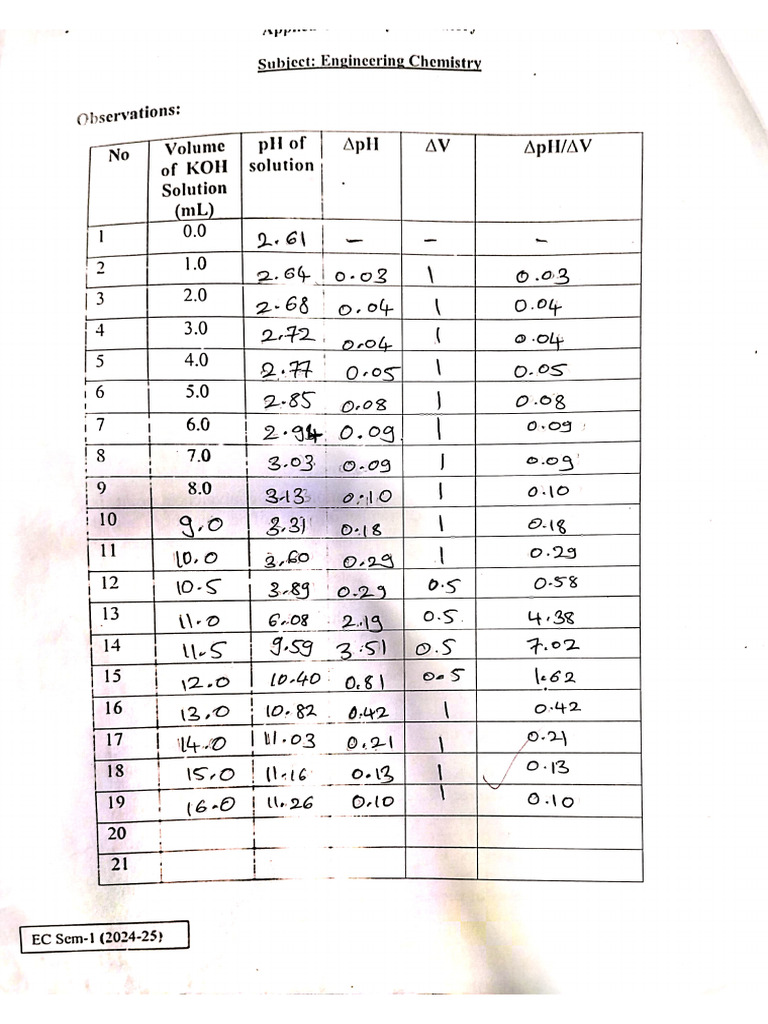 Subject: Engineering Chemistry
Observations:
No Volume of KOH Solution (mL) pH of solution ΔpH ΔV ΔpH/ΔV
1 0.0 2.61 – – –
2 1.0 2.64 0.03 1 0.03
3 2.0 2.68 0.04 1 0.04
4 3.0 2.72 0.04 1 0.04
5 4.0 2.77 0.05 1 0.05
6 5.0 2.85 0.08 1 0.08
7 6.0 2.94 0.09 1 0.09
8 7.0 3.03 0.09 1 0.09
9 8.0 3.13 0.10 1 0.10
10 9.0 3.31 0.18 1 0.18
11 10.0 3.60 0.29 1 0.29
12 10.5 3.89 0.29 0.5 0.58
13 11.0 6.08 2.19 0.5 4.38
14 11.5 9.59 3.51 0.5 7.02
15 12.0 10.40 0.81 0.5 1.62
16 13.0 10.82 0.42 1 0.42
17 14.0 11.03 0.21 1 0.21
18 15.0 11.16 0.13 1 0.13
19 16.0 11.26 0.10 1 0.10
20
21
EC Sem-1 (2024-25)